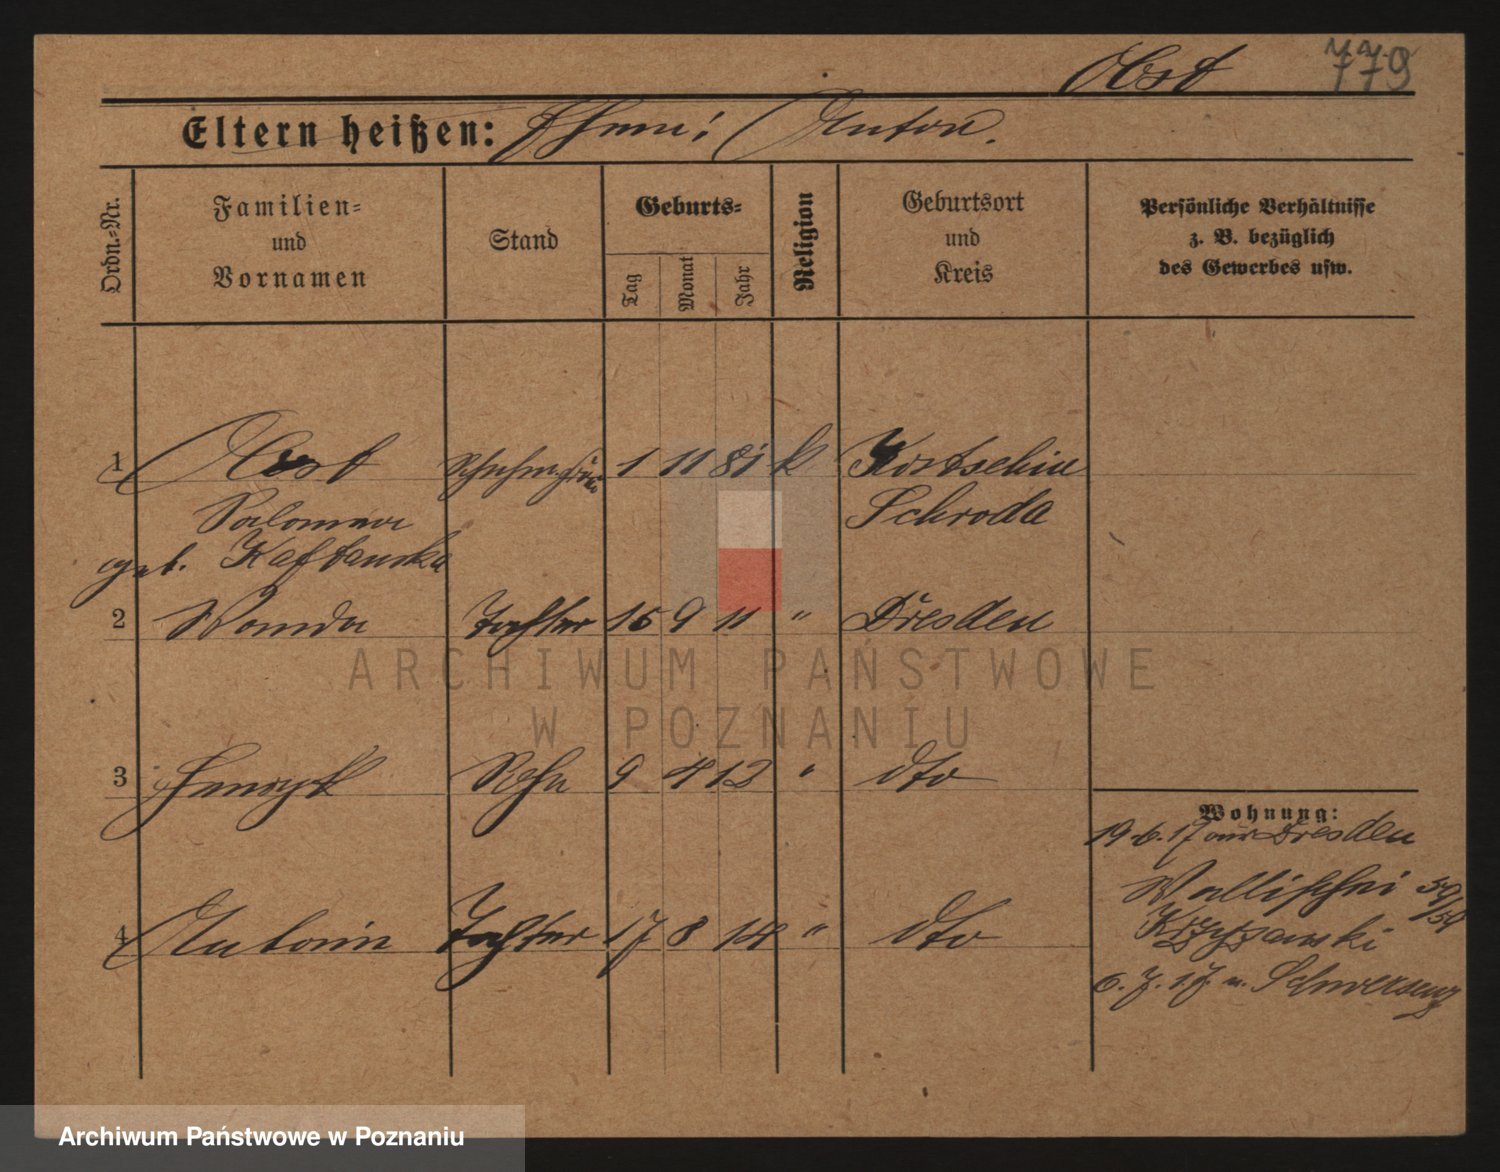 Obst 779
Eltern heißen: Ehem: Anton.
Ordn.-Nr.
Familien-
und
Vornamen
Stand
Geburts-
Tag
Monat
Jahr
Religion
Geburtsort
und
Kreis
Persönliche Verhältnisse
z. B. bezüglich
des Gewerbes usw.
1 Obst 1 11 81 k Kortschin
Salomea Schroda
geb. Kaftanska
2 Wanda Tochter 15 9 11 " Dresden
3 Henryk Sohn 9 4 12 " dto
Wohnung:
19.6.17 aus Dresden
Wallischei 54/54
4 Antonia Tochter 17 8 14 " dto
Krzyzanski
6. 7. 17. n. Schwersenz
ARCHIWUM PAŃSTWOWE
W POZNANIU
Archiwum Państwowe w Poznaniu